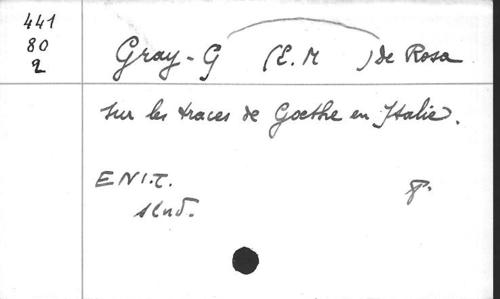 441
80
2
Gray-G (E. M ) de Rosa
Sur les traces de Goethe en Italie.
ENI.T.
s.l.n.d.